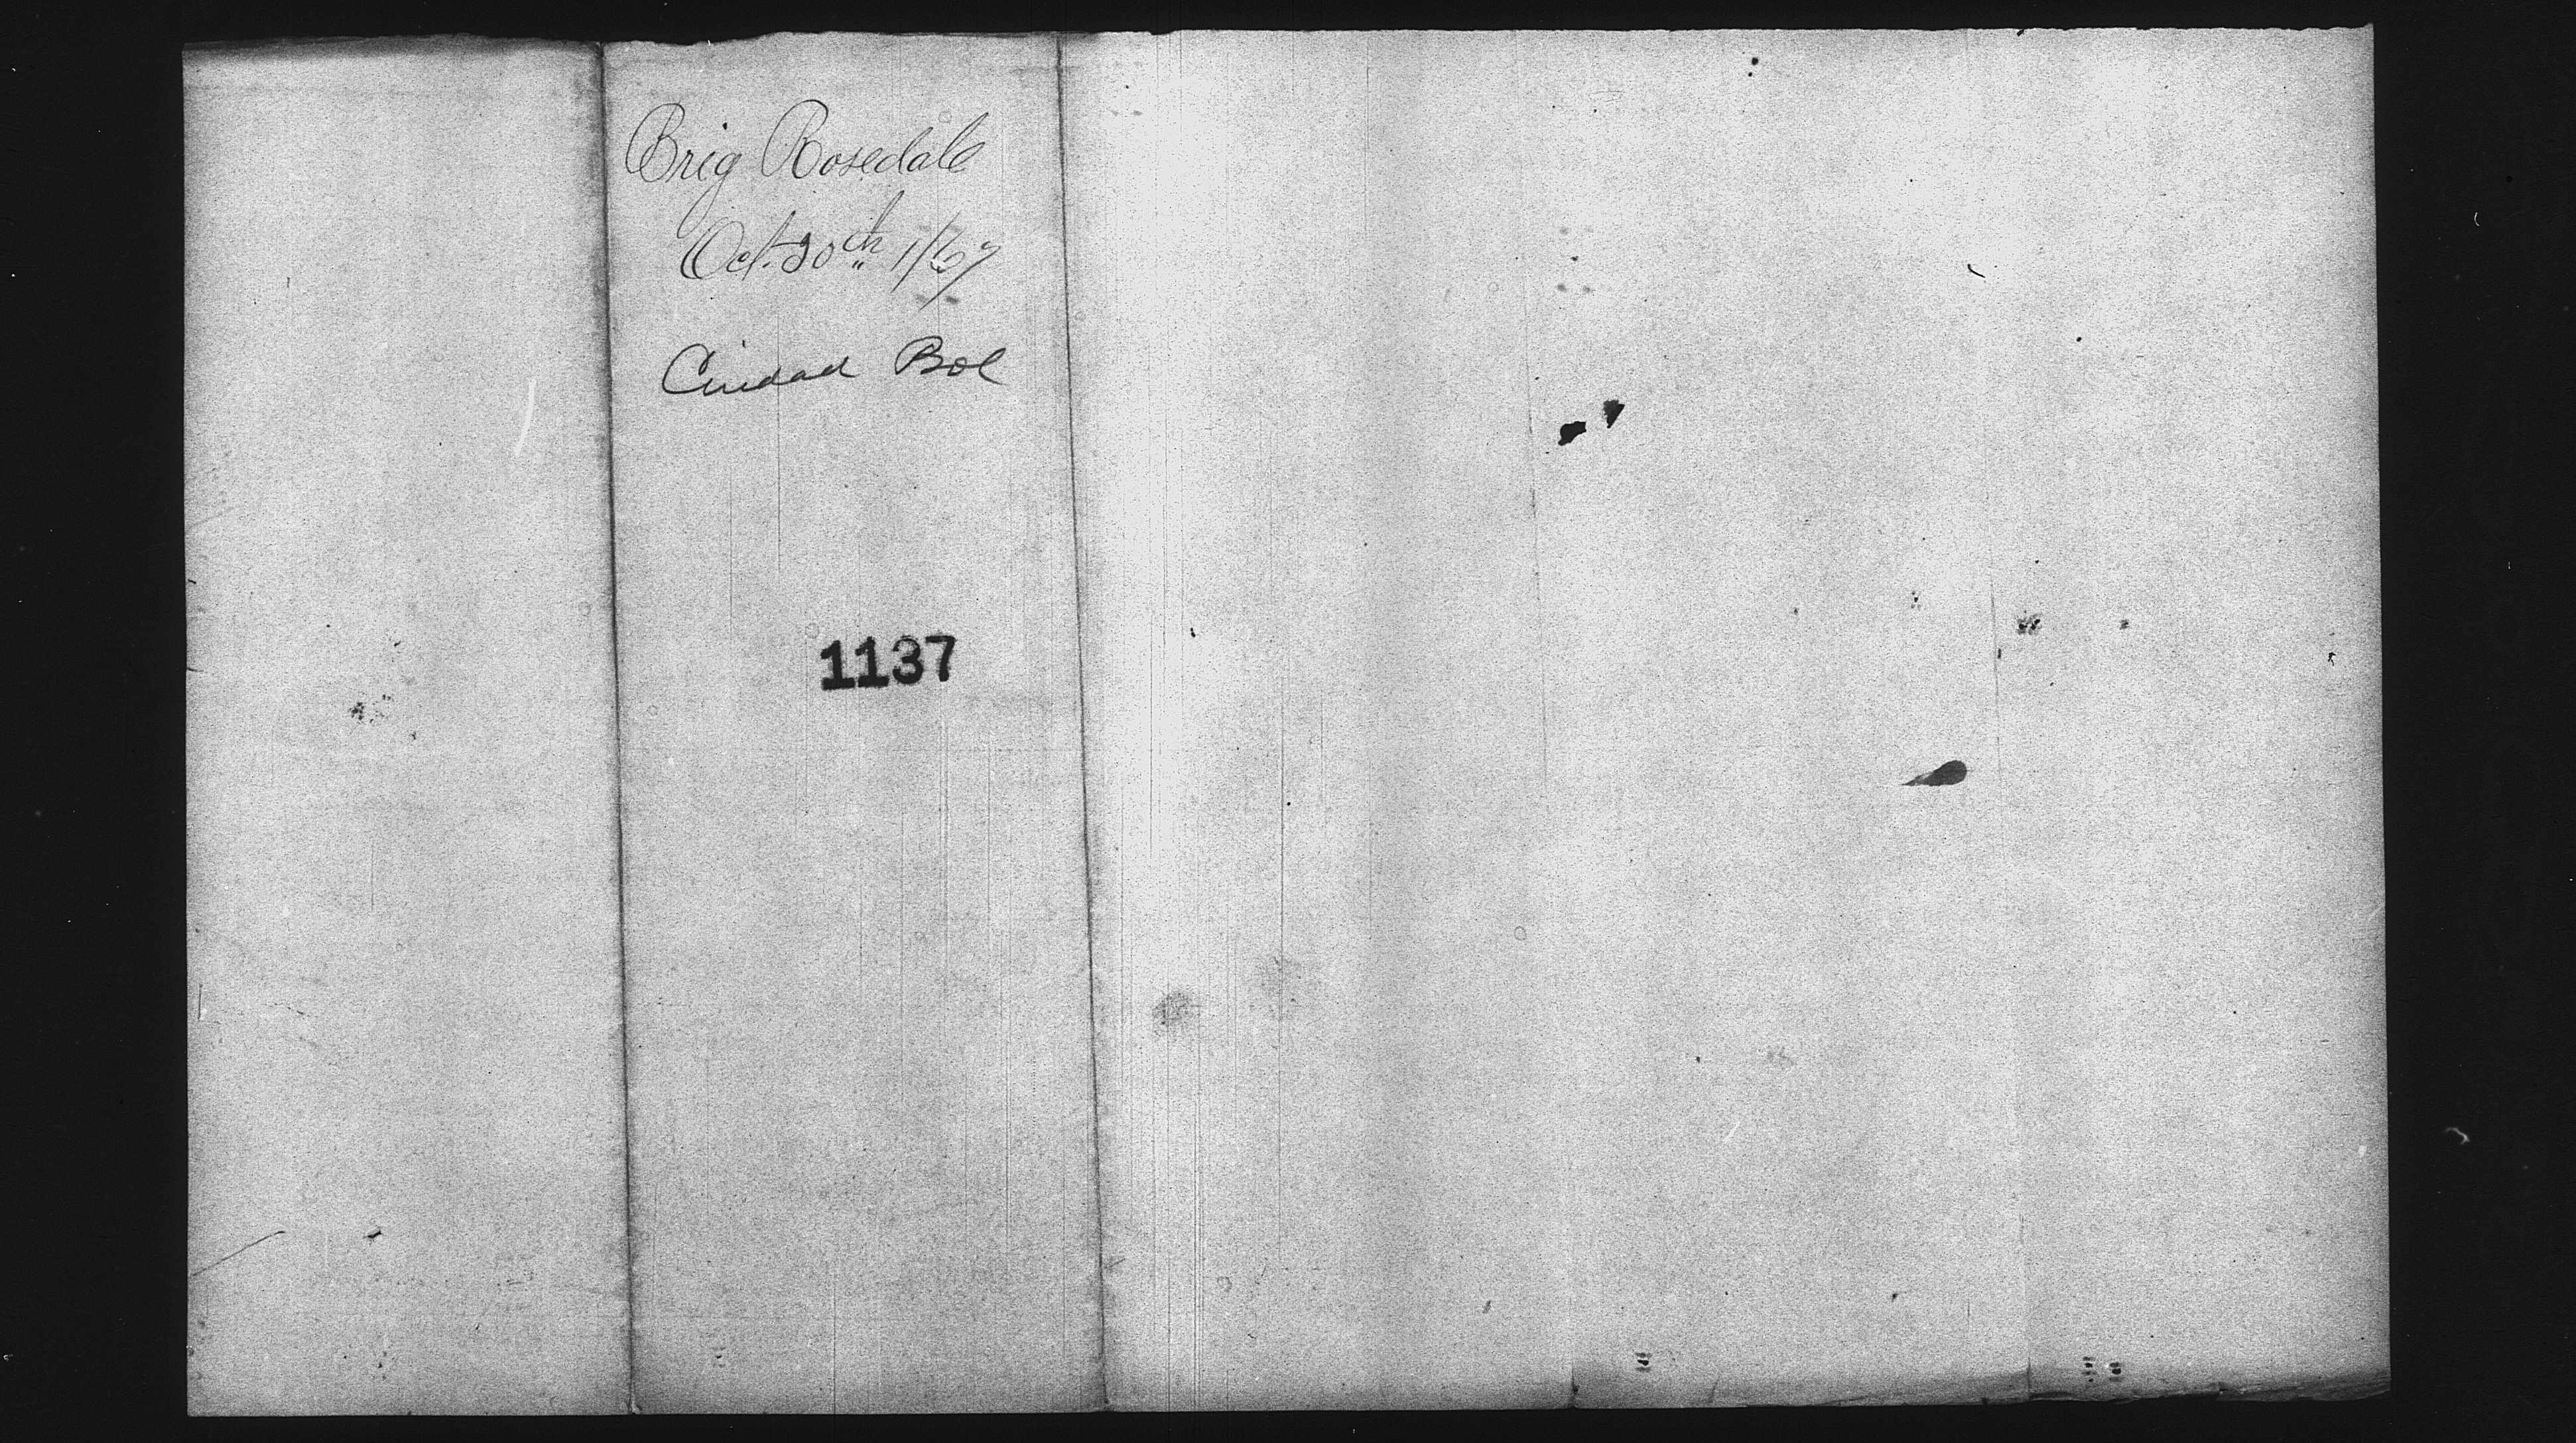 Brig Rosedale
Oct. 20th 1867
Ciudad Bol
1137